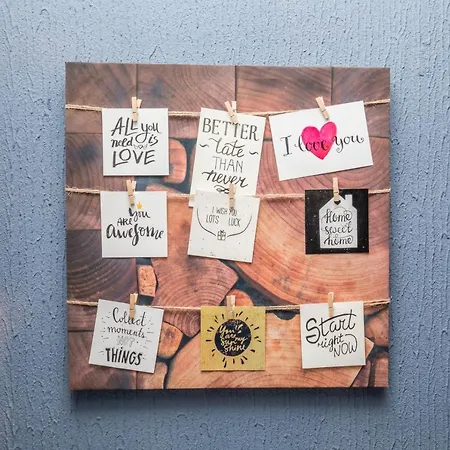 ALL you
need is
LOVE
BETTER
late
THAN
never
I love you
You
ARE
Awesome
I WISH YOU
LOTS LUCK
HOME
sweet
home
Collect
moments
not
THINGS
You
are my
sun
shine
Start
right
NOW